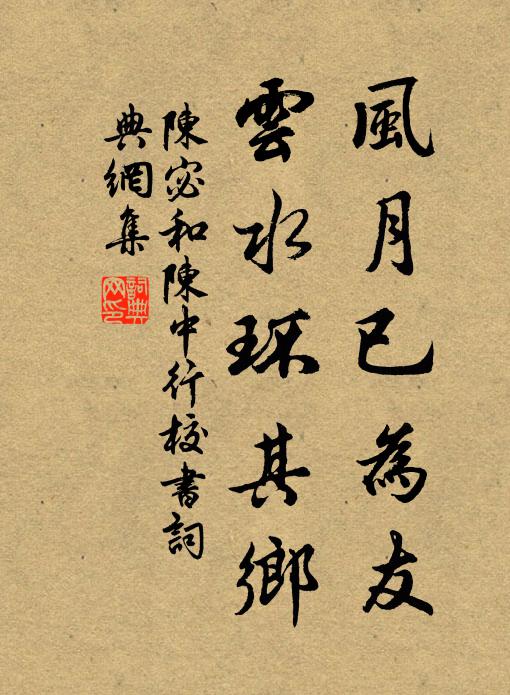 風月已為友
雲水环其鄉
陳宓和陳中行校書詞
典網集
詞典
网印